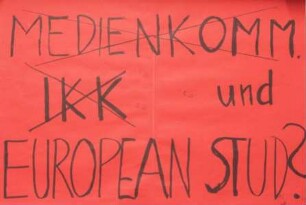 MEDIENKOMM.
IKK und
EUROPEAN STUD?